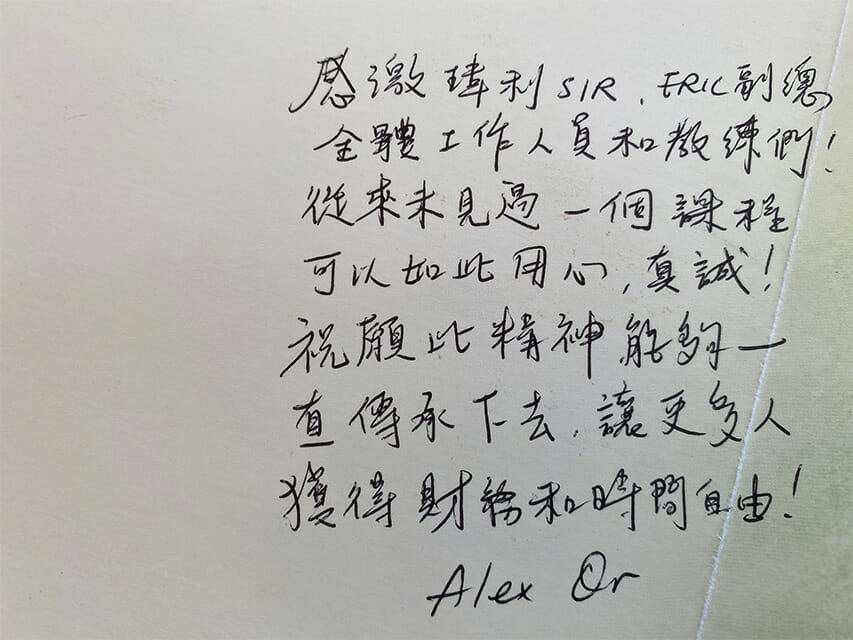 感激瑋利SIR、ERIC副總,
全體工作人員和教練們!
從來未見過一個課程
可以如此用心,真誠!
祝願此精神能夠一
直傳承下去,讓更多人
獲得財務和時間自由!
Alex Or